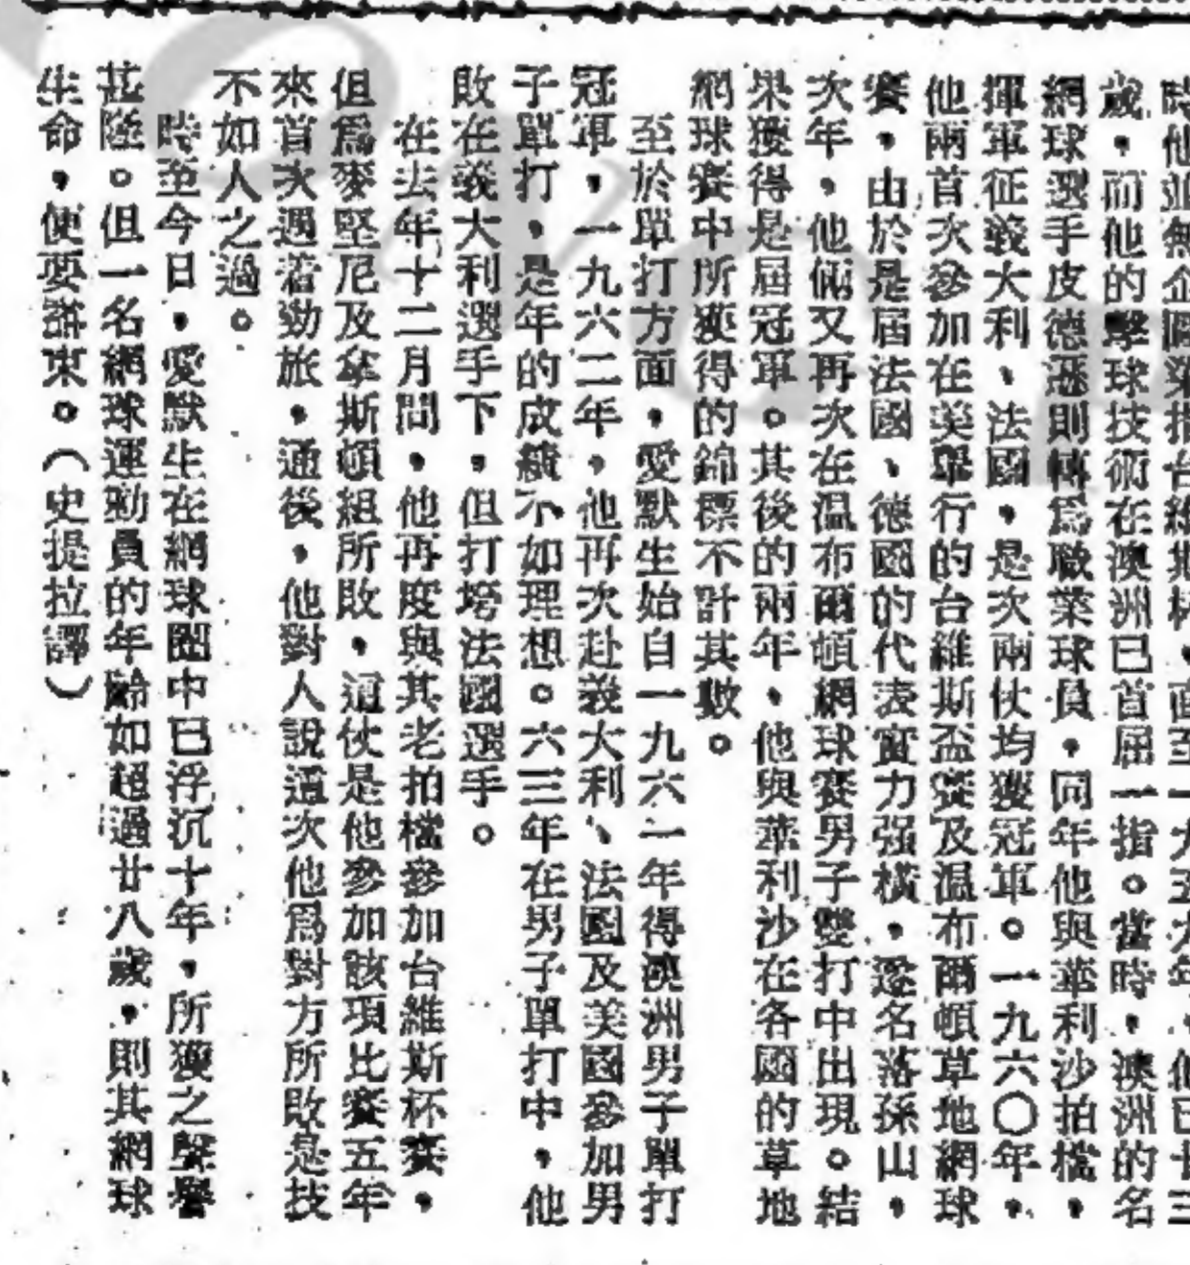 時他並無企圖染指台維斯杯，直至一九五九年，他已廿三
歲，而他的擊球技術在澳洲已首屈一指。當時，澳洲的名
網球選手皮德遜則轉爲職業球員，同年他與華利沙拍檔，
揮軍征義大利、法國，是次兩仗均獲冠軍。一九六〇年，
他兩首次參加在美舉行的台維斯盃賽及温布爾頓草地網球
賽，由於是屆法國、德國的代表實力强橫，遂名落孫山，
次年，他倆又再次在温布爾頓網球賽男子雙打中出現。結
果獲得是屆冠軍。其後的兩年，他與華利沙在各國的草地
網球賽中所獲得的錦標不計其數。
至於單打方面，愛默生始自一九六一年得澳洲男子單打
冠軍，一九六二年，他再次赴義大利、法國及美國參加男
子單打，是年的成績不如理想。六三年在男子單打中，他
敗在義大利選手下，但打垮法國選手。
在去年十二月間，他再度與其老拍檔參加台維斯杯賽，
但爲麥堅尼及拿斯頓組所敗，這仗是他參加該項比賽五年
來首次遇着勁旅，過後，他對人說這次他爲對方所敗是技
不如人之過。
時至今日，愛默生在網球圈中已浮沉十年，所獲之聲譽
甚隆。但一名網球運動員的年齡如超過廿八歲，則其網球
生命，便要結束。（史提拉譯）